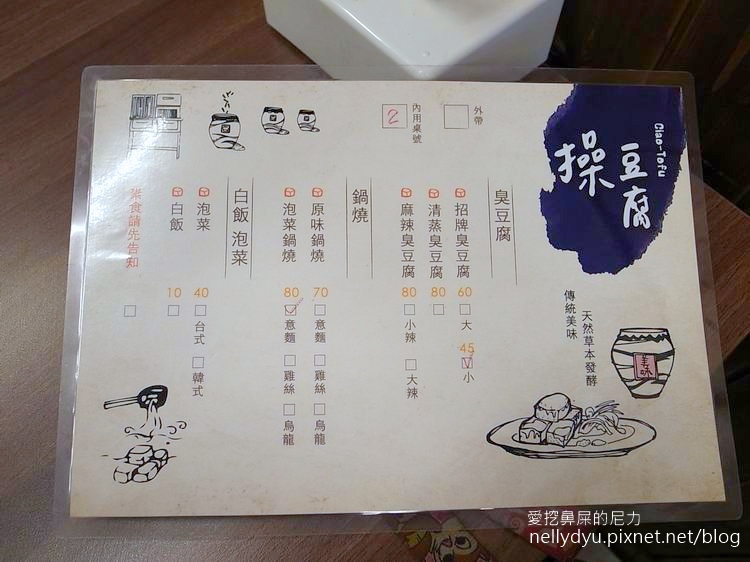 操豆腐
Ciao-Tofu
天然草本發酵
傳統美味
美味
外帶
內用桌號
2
臭豆腐
招牌臭豆腐 60 大 45 小
清蒸臭豆腐 80
麻辣臭豆腐 80 小辣 大辣
鍋燒
原味鍋燒 70 意麵 雞絲 烏龍
泡菜鍋燒 80 意麵 雞絲 烏龍
白飯 泡菜
泡菜 40 台式 韓式
白飯 10
素食請先告知
愛挖鼻屎的尼力
nellydyu.pixnet.net/blog